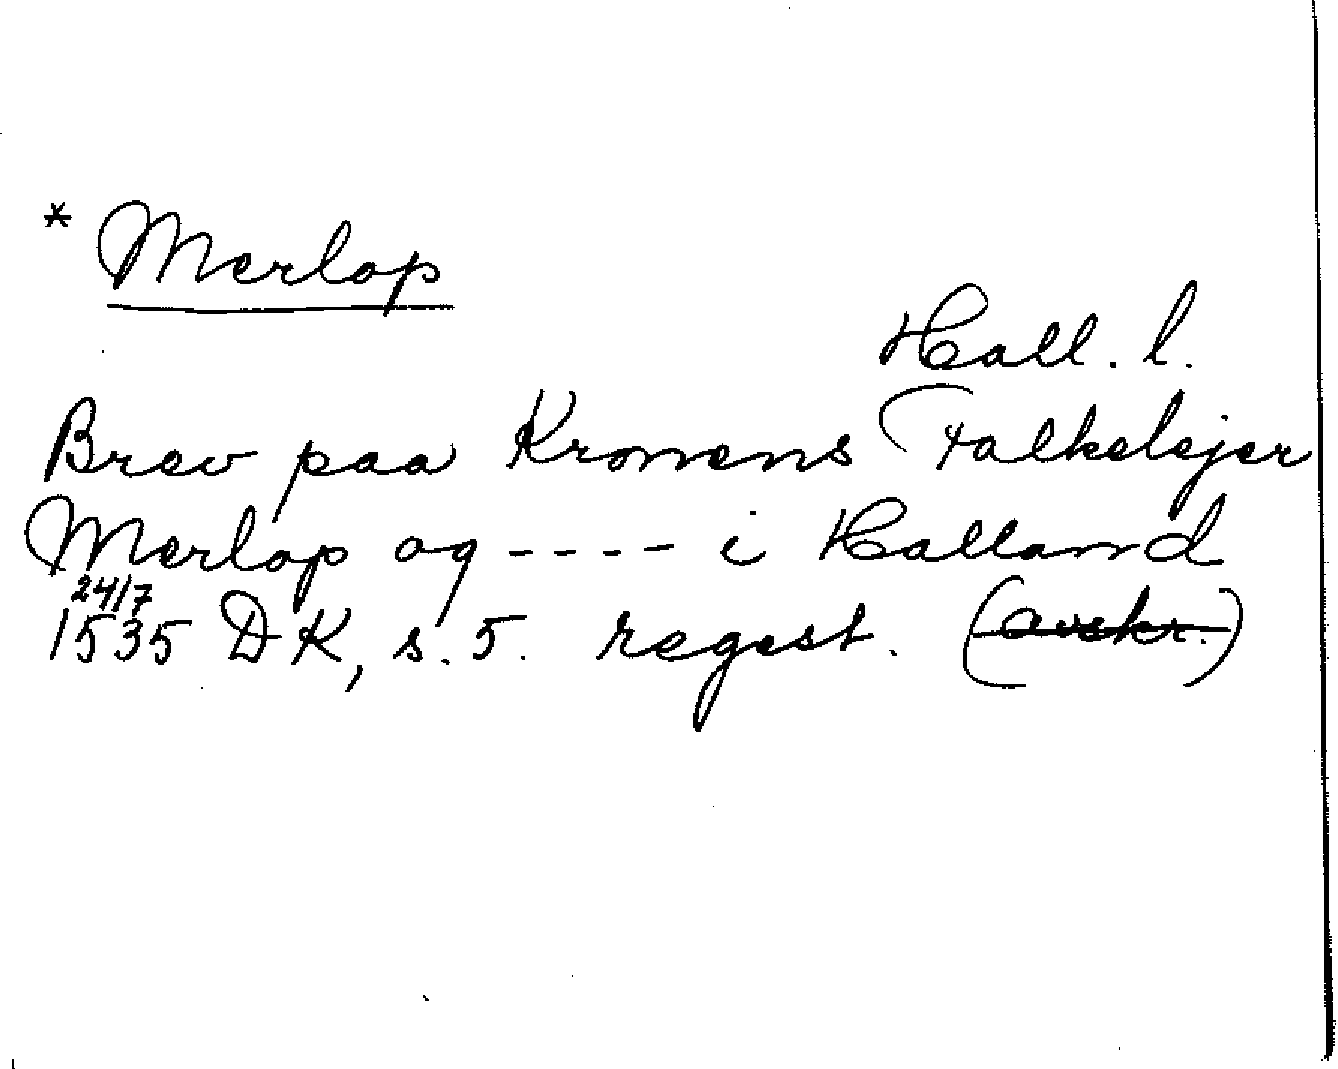 * Merlop
Hall. l.
Brev paa Kronens Falkelejer
Merlop og ---- i Halland
24/7
1535 DK, s. 5. regest. (avskr.)